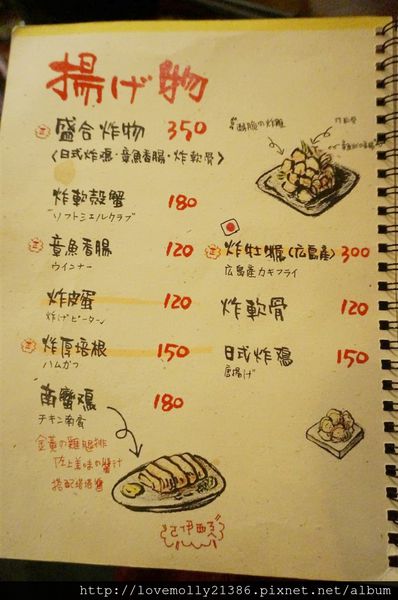 揚げ物
盛合炸物 350
〈日式炸鳮・章魚香腸・炸軟骨〉
炸軟殼蟹 180
ソフトシェルクラブ
章魚香腸 120
ウインナー
炸皮蛋 120
炸げピータン
炸厚培根 150
ハムカツ
南蠻鳮 180
チキン南蛮
金黃の雞腿排
佐上美味の醬汁
搭配塔塔醬
炸牡蠣(広島産) 300
広島産カキフライ
炸軟骨 120
日式炸鳮 150
唐揚げ
http://lovemolly21386.pixnet.net/album